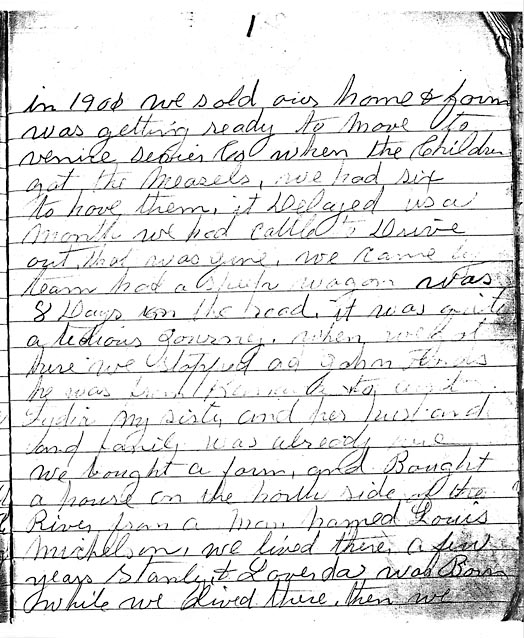 1
in 190 we sold our home & farm
was getting ready to move to
venice Sevier Co when the Children
got the Measels, we had six
to have them, it Delayed us a
month we had cattle to Drive
out, that was gone, we came by
team had a wagon was
8 Days on the road, it was quite
a tedious Journey, when we got
there we stopped at John
he was from to
Lydia My sister and her husband
and family was already
we bought a farm, and Bought
a house on the north side of the
River from a man named Louis
Michelson, we lived there a few
years Stanley & Laverda was Born
while we lived there, then we